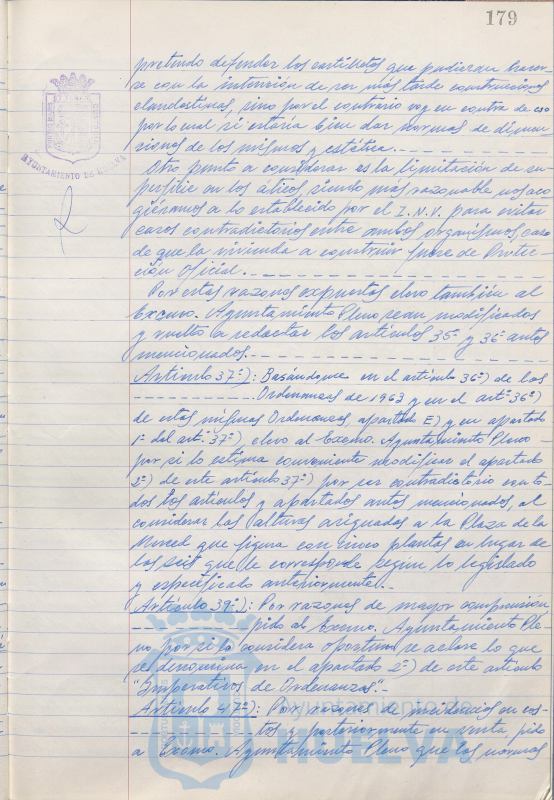 179
pretendo defender los castilletes que pudieran hacer-
se con la intención de ser más tarde construcciones
clandestinas, sino por el contrario voy en contra de eso
por lo cual si estaría bien dar normas de dimen-
siones de los mismos y estética.
Otro punto a considerar es la limitación de su-
perficie en los áticos, siendo más razonable nos aco
giéramos a lo establecido por el I.N.V. para evitar
casos contradictorios entre ambos organismos, caso
de que la vivienda a construir fuese de Protec-
ción Oficial.
Por estas razones expuestas elevo también al
Excmo. Ayuntamiento Pleno sean modificados
y vuelto a redactar los artículos 35º y 36º antes
mencionados.
Artículo 37º): Basándome en el artículo 36º) de las
Ordenanzas de 1963 y en el artº 36º)
de estas mismas Ordenanzas, apartado E) y en apartado
1º del artº 37º) elevo al Excmo. Ayuntamiento Pleno
por si lo estima conveniente modificar el apartado
2º) de este artículo 37º) por ser contradictorio con to-
dos los artículos y apartados antes mencionados, al
considerar las alturas asignadas a la Plaza de la
Merced que figura con cinco plantas en lugar de
las seis que le corresponde según lo legislado
y especificado anteriormente.
Artículo 39º): Por razones de mayor comprensión
pido al Excmo. Ayuntamiento Ple-
no por si lo considera oportuno se aclare lo que
se denomina en el apartado 2º) de este artículo
"Imperativos de Ordenanzas".-
Artículo 47º): Por razones de incidencias en cos-
tos y posteriormente en venta, pido
a Excmo. Ayuntamiento Pleno que las normas
AYUNTAMIENTO DE HUELVA
Ayuntamiento de
HUELVA